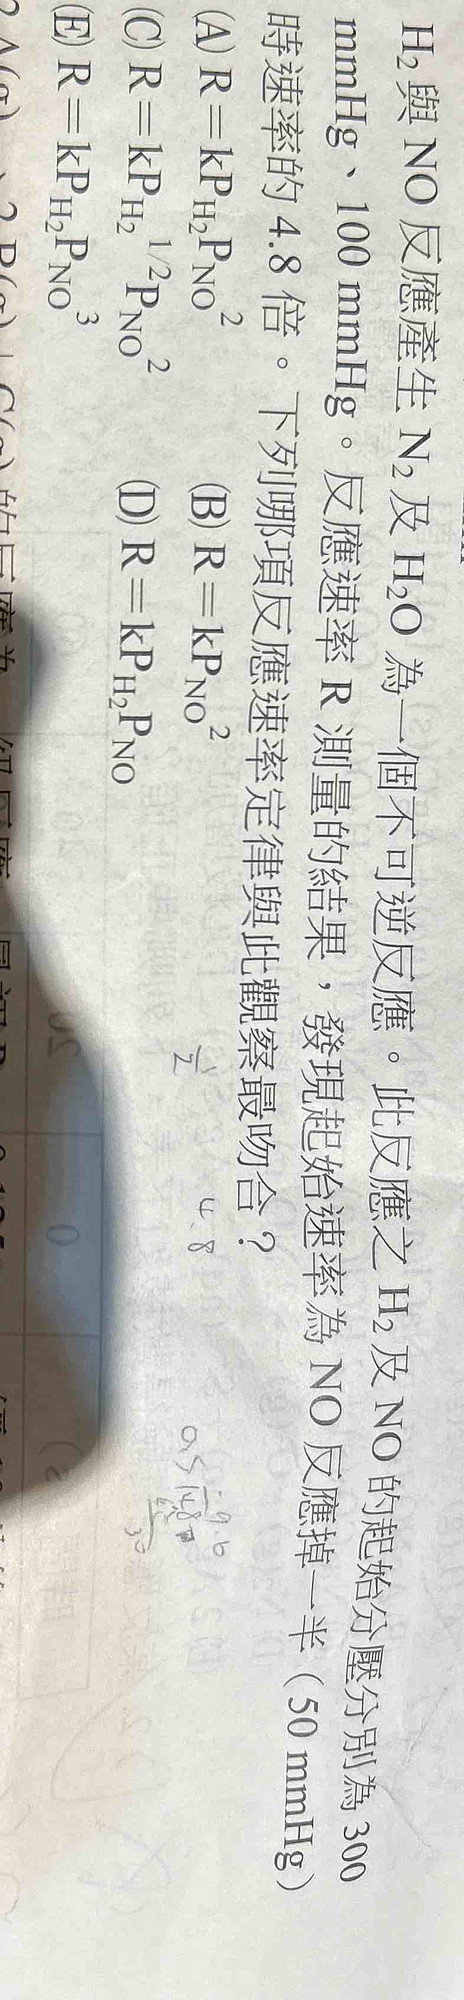 H₂ 與 NO 反應產生 N₂ 及 H₂O 為一個不可逆反應。此反應之 H₂ 及 NO 的起始分壓分別為 300
mmHg、100 mmHg。反應速率 R 測量的結果，發現起始速率為 NO 反應掉一半（50 mmHg）
時速率的 4.8 倍。下列哪項反應速率定律與此觀察最吻合？
(A) R＝kP_H₂P_NO² (B) R＝kP_NO²
(C) R＝kP_H₂^1/2P_NO² (D) R＝kP_H₂P_NO
(E) R＝kP_H₂P_NO³
1/2
4.8
9.6